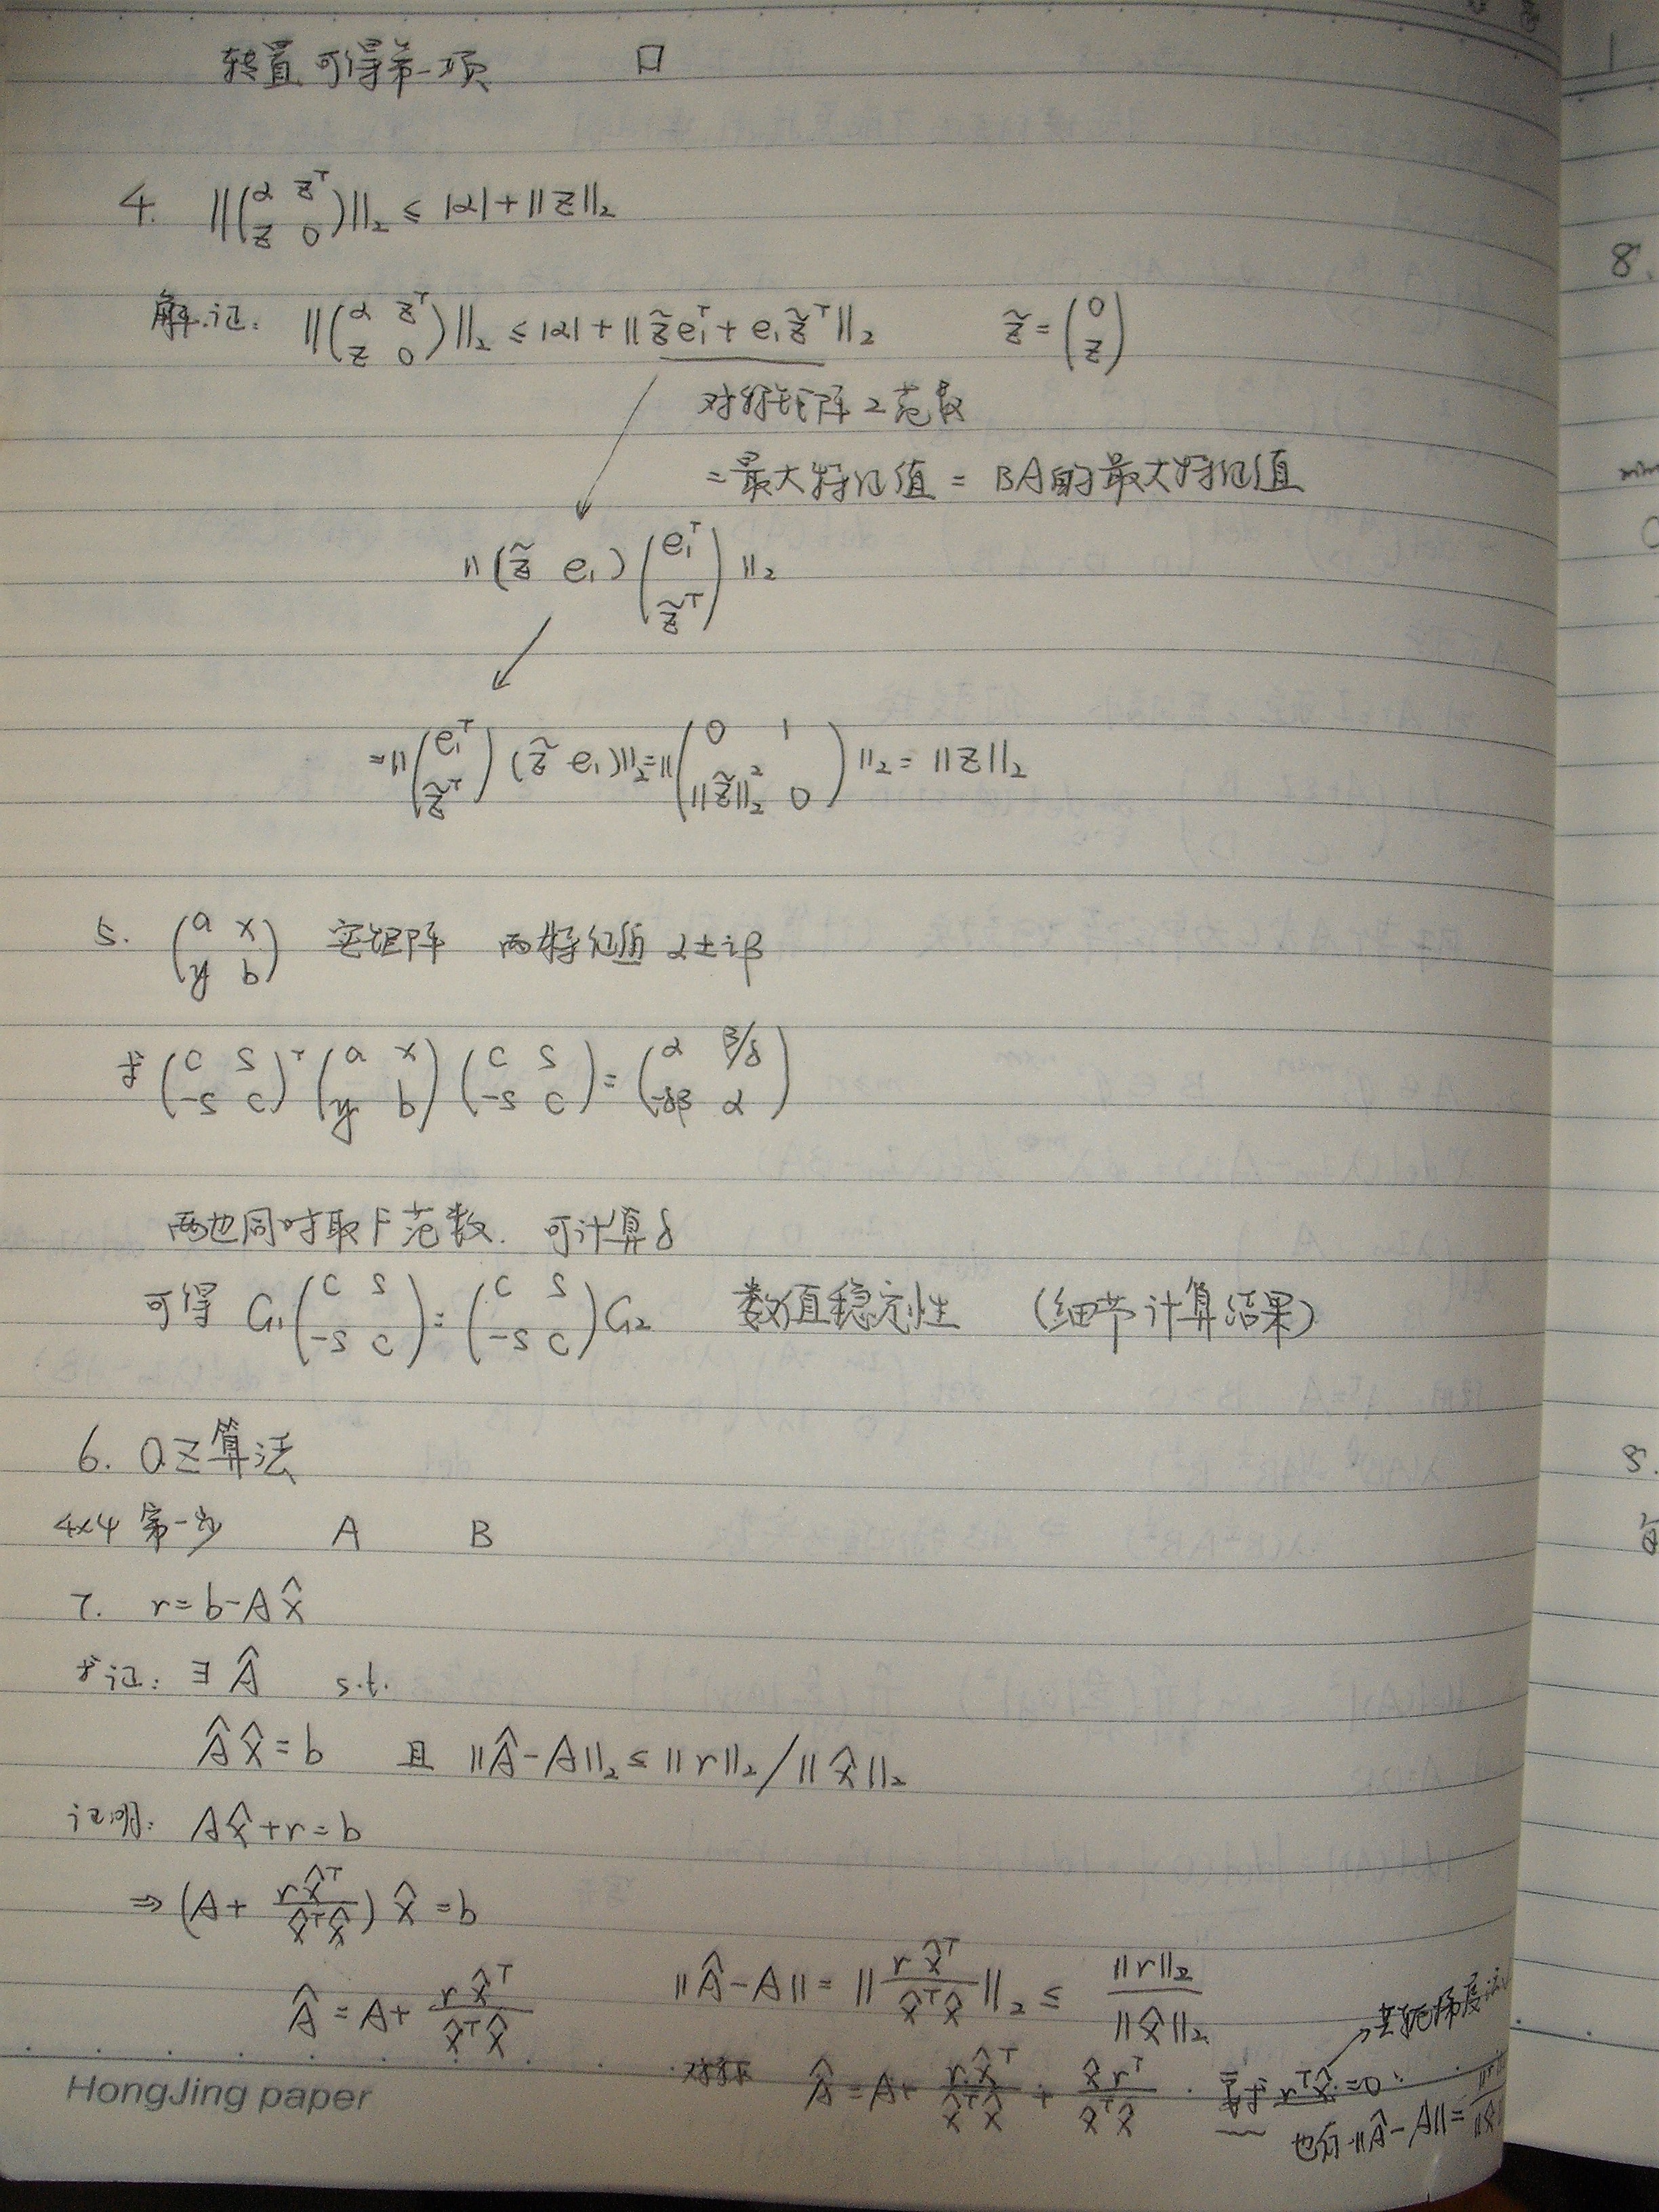 转置可得第一项 □
4. ||(α z^T; z 0)||₂ ≤ |α| + ||z||₂
解.证: ||(α z^T; z 0)||₂ ≤ |α| + ||z̃e₁^T + e₁z̃^T||₂ z̃ = (0; z)
对称矩阵2范数
= 最大特征值 = BA的最大特征值
||(z̃ e₁)(e₁^T; z̃^T)||₂
= ||(e₁^T; z̃^T)(z̃ e₁)||₂ = ||(0 1; ||z̃||₂² 0)||₂ = ||z||₂
5. (a x; y b) 实矩阵 两特征值 α±iβ
求 (c s; -s c)^T (a x; y b) (c s; -s c) = (α β/δ; -δβ α)
两边同时取F范数. 可计算δ
可得 G₁(c s; -s c) = (c s; -s c)G₂ 数值稳定性 (细节计算结果)
6. QZ算法
4×4 第一步 A B
7. r = b - Ax̂
求证: ∃ Â s.t.
Âx̂ = b 且 ||Â - A||₂ ≤ ||r||₂ / ||x̂||₂
证明: Ax̂ + r = b
⇒ (A + rx̂^T / x̂^Tx̂) x̂ = b
Â = A + rx̂^T / x̂^Tx̂ ||Â - A|| = ||rx̂^T / x̂^Tx̂||₂ ≤ ||r||₂ / ||x̂||₂
对称 Â = A + rx̂^T / x̂^Tx̂ + x̂r^T / x̂^Tx̂ . r^Tx̂ = 0 → 共轭梯度法
也有 ||Â - A|| =
HongJing paper
8.